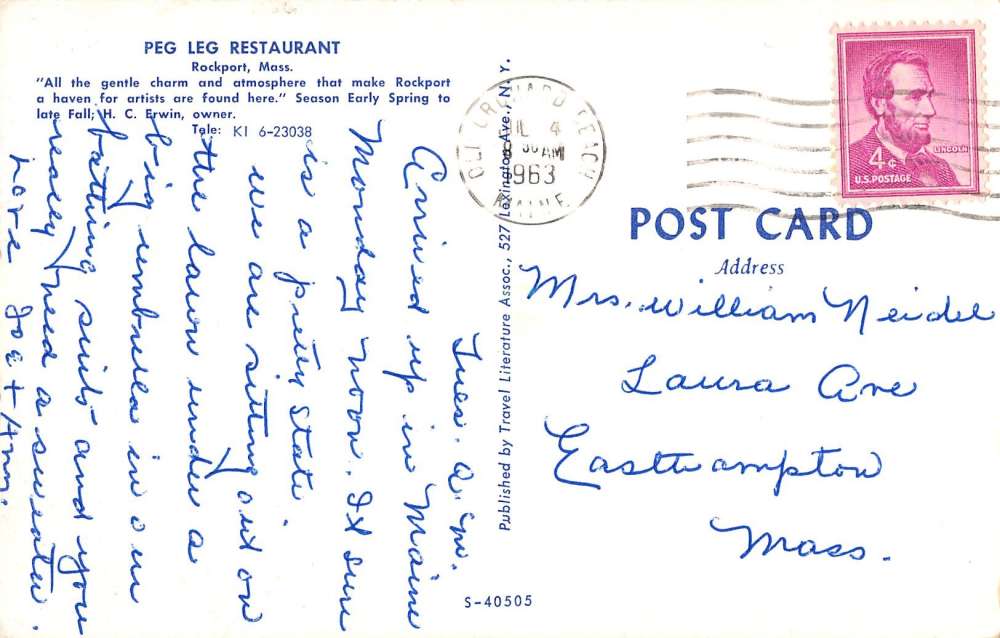 PEG LEG RESTAURANT
Rockport, Mass.
"All the gentle charm and atmosphere that make Rockport
a haven for artists are found here." Season Early Spring to
late Fall; H. C. Erwin, owner.
Tele: KI 6-23038
Tues. a.m.
Arrived up in Maine
Monday noon. It sure
is a pretty state.
we are sitting out on
the lawn under a
big umbrella in our
bathing suits and you
really need a sweater.
Love Joe + Ann.
Published by Travel Literature Assoc., 527 Lexington Ave., N. Y.
S-40505
OLD ORCHARD BEACH
JUL 4
8 30 AM
1963
MAINE
LINCOLN
4¢
U.S. POSTAGE
POST CARD
Address
Mrs. William Neidel
Laura Ave
Easthampton
Mass.